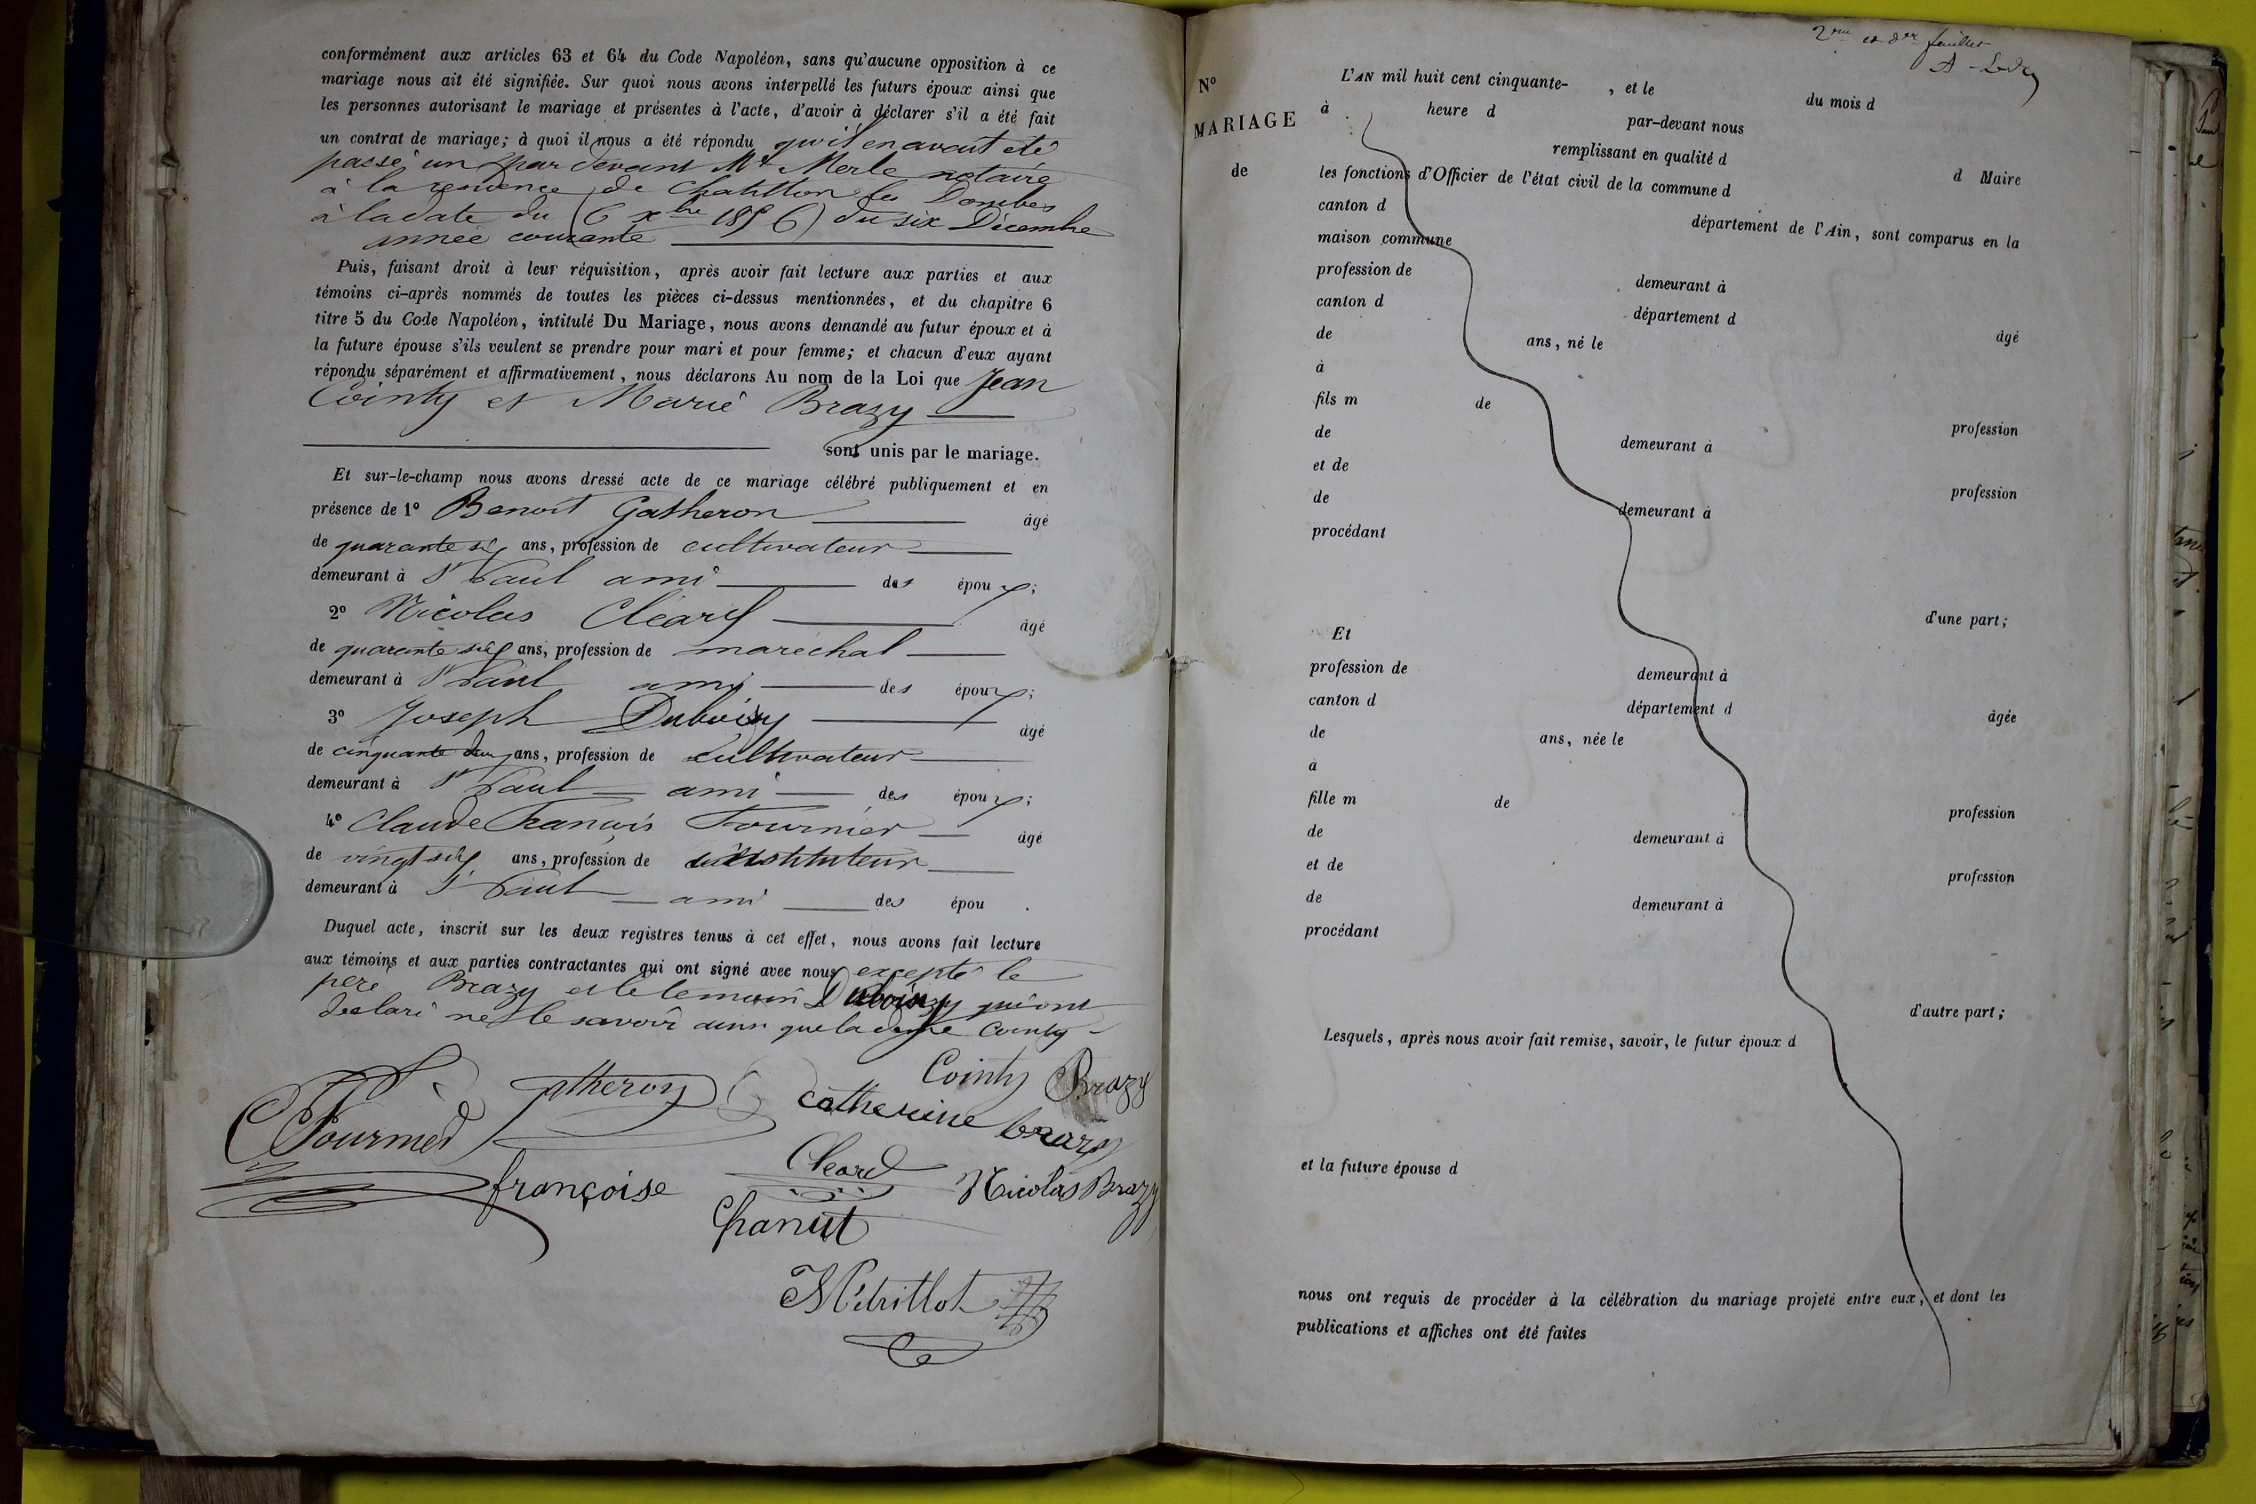 conformément aux articles 63 et 64 du Code Napoléon, sans qu'aucune opposition à ce
mariage nous ait été signifiée. Sur quoi nous avons interpellé les futurs époux ainsi que
les personnes autorisant le mariage et présentes à l'acte, d'avoir à déclarer s'il a été fait
un contrat de mariage; à quoi il nous a été répondu qu'il en avait été
passé un par devant Mt Merle notaire
à la residence de Chatillon les Dombes
à la date du (6 xbre 1856) du six Décembre
année courante
Puis, faisant droit à leur réquisition, après avoir fait lecture aux parties et aux
témoins ci-après nommés de toutes les pièces ci-dessus mentionnées, et du chapitre 6
titre 5 du Code Napoléon, intitulé Du Mariage, nous avons demandé au futur époux et à
la future épouse s'ils veulent se prendre pour mari et pour femme; et chacun d'eux ayant
répondu séparément et affirmativement, nous déclarons Au nom de la Loi que Jean
Cointy et Marie Brazy
sont unis par le mariage.
Et sur-le-champ nous avons dressé acte de ce mariage célébré publiquement et en
présence de 1° Benoit Gatheron âgé
de quarante six ans, profession de cultivateur
demeurant à St Paul ami des époux;
2° Nicolas Cléard âgé
de quarante six ans, profession de maréchal
demeurant à St Paul ami des époux;
3° Joseph Duboisy âgé
de cinquante deux ans, profession de cultivateur
demeurant à St Paul ami des époux;
4° Claude François Fournier âgé
de vingt six ans, profession de instituteur
demeurant à St Paul ami des épou .
Duquel acte, inscrit sur les deux registres tenus à cet effet, nous avons fait lecture
aux témoins et aux parties contractantes qui ont signé avec nous excepté le
père Brazy et le témoin Duboisy qui ont
déclaré ne le savoir ainsi que la dame Cointy
Cointy Brazy
Gatheron
Catherine brazy
C Fournier
Cleard
françoise
Nicolas Brazy
Chanut
Métrillot
2me et der feuillet
N°
MARIAGE
de
L'AN mil huit cent cinquante- , et le du mois d
à heure d par-devant nous
remplissant en qualité d d Maire
les fonctions d'Officier de l'état civil de la commune d
canton d département de l'Ain, sont comparus en la
maison commune
profession de demeurant à
canton d département d âgé
de ans, né le
à
fils m de profession
de demeurant à
et de profession
de demeurant à
procédant
d'une part;
Et
profession de demeurant à
canton d département d âgée
de ans, née le
à
fille m de profession
de demeurant à
et de profession
de demeurant à
procédant
d'autre part;
Lesquels, après nous avoir fait remise, savoir, le futur époux d
et la future épouse d
nous ont requis de procéder à la célébration du mariage projeté entre eux, et dont les
publications et affiches ont été faites